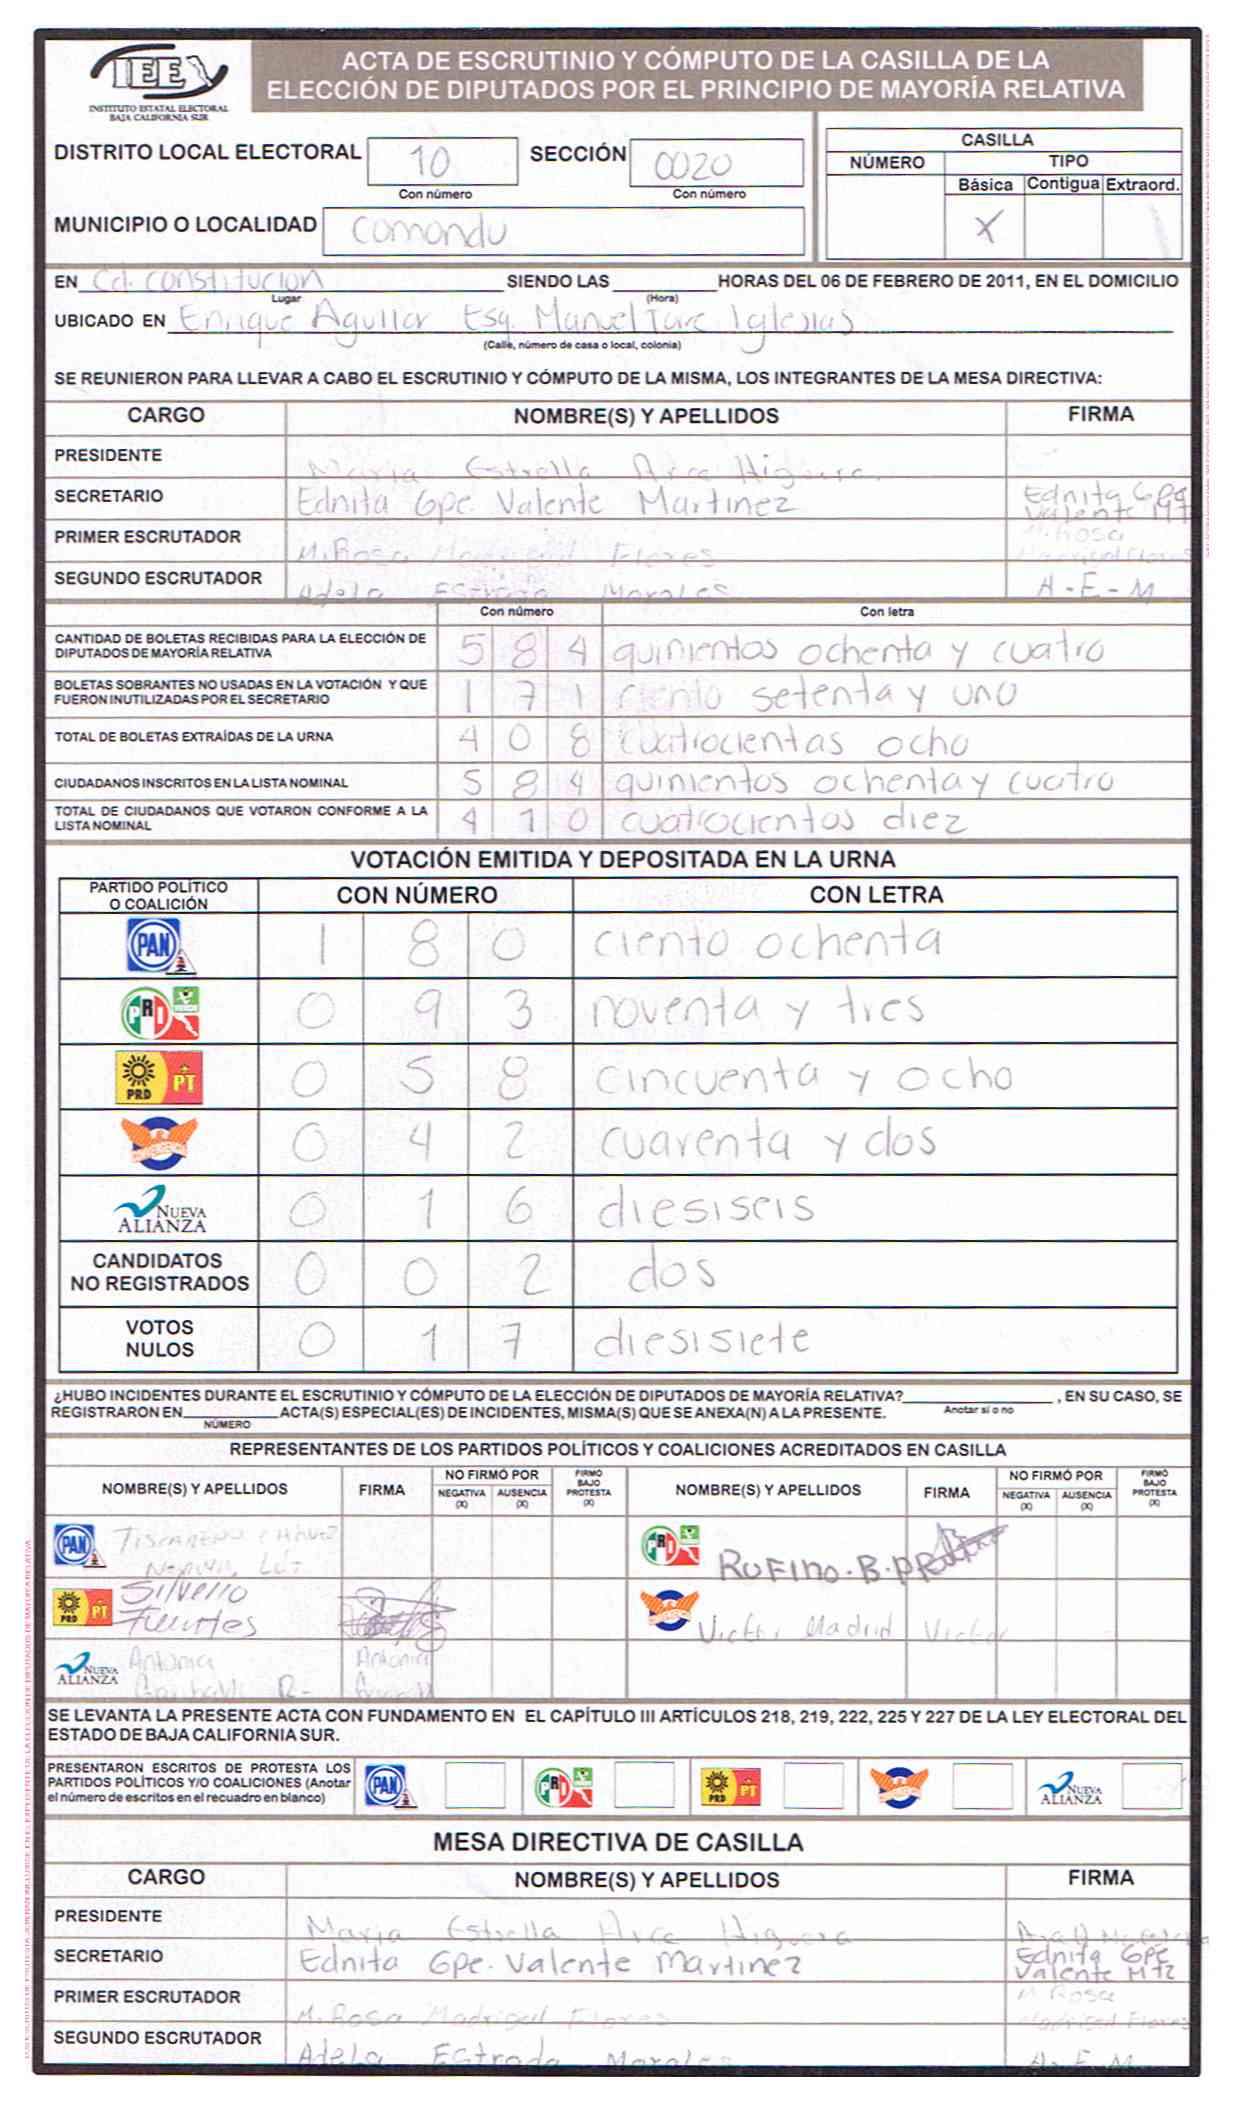 IEE
INSTITUTO ESTATAL ELECTORAL
BAJA CALIFORNIA SUR
ACTA DE ESCRUTINIO Y CÓMPUTO DE LA CASILLA DE LA
ELECCIÓN DE DIPUTADOS POR EL PRINCIPIO DE MAYORÍA RELATIVA
DISTRITO LOCAL ELECTORAL 10 SECCIÓN 0020
Con número Con número
MUNICIPIO O LOCALIDAD Comondu
CASILLA
NÚMERO TIPO
Básica Contigua Extraord.
X
EN Cd. Constitucion SIENDO LAS HORAS DEL 06 DE FEBRERO DE 2011, EN EL DOMICILIO
Lugar (Hora)
UBICADO EN Enrique Aguilar Esq. Manuel Iglesias
(Calle, número de casa o local, colonia)
SE REUNIERON PARA LLEVAR A CABO EL ESCRUTINIO Y CÓMPUTO DE LA MISMA, LOS INTEGRANTES DE LA MESA DIRECTIVA:
CARGO NOMBRE(S) Y APELLIDOS FIRMA
PRESIDENTE Maria Estrella Arce Higuera
SECRETARIO Ednita Gpe. Valente Martinez Ednita Gpe Valente Mtz
PRIMER ESCRUTADOR M. Rosa Madrigal Flores M. Rosa Madrigal Flores
SEGUNDO ESCRUTADOR Adela Estrada Morales A-E-M
Con número Con letra
CANTIDAD DE BOLETAS RECIBIDAS PARA LA ELECCIÓN DE
DIPUTADOS DE MAYORÍA RELATIVA 5 8 4 quinientos ochenta y cuatro
BOLETAS SOBRANTES NO USADAS EN LA VOTACIÓN Y QUE
FUERON INUTILIZADAS POR EL SECRETARIO 1 7 1 ciento setenta y uno
TOTAL DE BOLETAS EXTRAÍDAS DE LA URNA 4 0 8 cuatrocientas ocho
CIUDADANOS INSCRITOS EN LA LISTA NOMINAL 5 8 4 quinientos ochenta y cuatro
TOTAL DE CIUDADANOS QUE VOTARON CONFORME A LA
LISTA NOMINAL 4 1 0 cuatrocientos diez
VOTACIÓN EMITIDA Y DEPOSITADA EN LA URNA
PARTIDO POLÍTICO
O COALICIÓN CON NÚMERO CON LETRA
PAN 1 8 0 ciento ochenta
PRI 0 9 3 noventa y tres
PRD PT 0 5 8 cincuenta y ocho
0 4 2 cuarenta y dos
NUEVA ALIANZA 0 1 6 diesiseis
CANDIDATOS
NO REGISTRADOS 0 0 2 dos
VOTOS
NULOS 0 1 7 diesisiete
¿HUBO INCIDENTES DURANTE EL ESCRUTINIO Y CÓMPUTO DE LA ELECCIÓN DE DIPUTADOS DE MAYORÍA RELATIVA? , EN SU CASO, SE
Anotar sí o no
REGISTRARON EN ACTA(S) ESPECIAL(ES) DE INCIDENTES, MISMA(S) QUE SE ANEXA(N) A LA PRESENTE.
NÚMERO
REPRESENTANTES DE LOS PARTIDOS POLÍTICOS Y COALICIONES ACREDITADOS EN CASILLA
NOMBRE(S) Y APELLIDOS FIRMA NO FIRMÓ POR NEGATIVA (X) AUSENCIA (X) FIRMÓ BAJO PROTESTA (X) NOMBRE(S) Y APELLIDOS FIRMA NO FIRMÓ POR NEGATIVA (X) AUSENCIA (X) FIRMÓ BAJO PROTESTA (X)
PAN PRI Rufino. B. P
PRD PT Silverio Fuentes Victor Madrid Victor
NUEVA ALIANZA Antonia R- Antonia
SE LEVANTA LA PRESENTE ACTA CON FUNDAMENTO EN EL CAPÍTULO III ARTÍCULOS 218, 219, 222, 225 Y 227 DE LA LEY ELECTORAL DEL
ESTADO DE BAJA CALIFORNIA SUR.
PRESENTARON ESCRITOS DE PROTESTA LOS
PARTIDOS POLÍTICOS Y/O COALICIONES (Anotar
el número de escritos en el recuadro en blanco) PAN PRI PRD PT NUEVA ALIANZA
MESA DIRECTIVA DE CASILLA
CARGO NOMBRE(S) Y APELLIDOS FIRMA
PRESIDENTE Maria Estrella Arce Higuera
SECRETARIO Ednita Gpe. Valente Martinez Ednita Gpe Valente Mtz
PRIMER ESCRUTADOR M. Rosa Madrigal Flores M Rosa Madrigal Flores
SEGUNDO ESCRUTADOR Adela Estrada Morales A-E-M